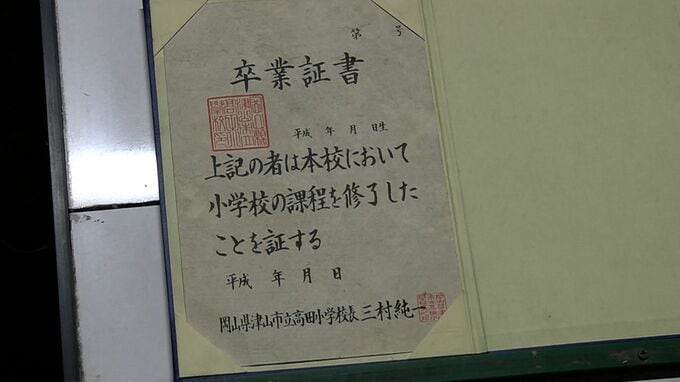 第　号
卒業証書
平成　年　月　日生
上記の者は本校において
小学校の課程を修了した
ことを証する
平成　年　月　日
岡山県津山市立高田小学校長 三村純一